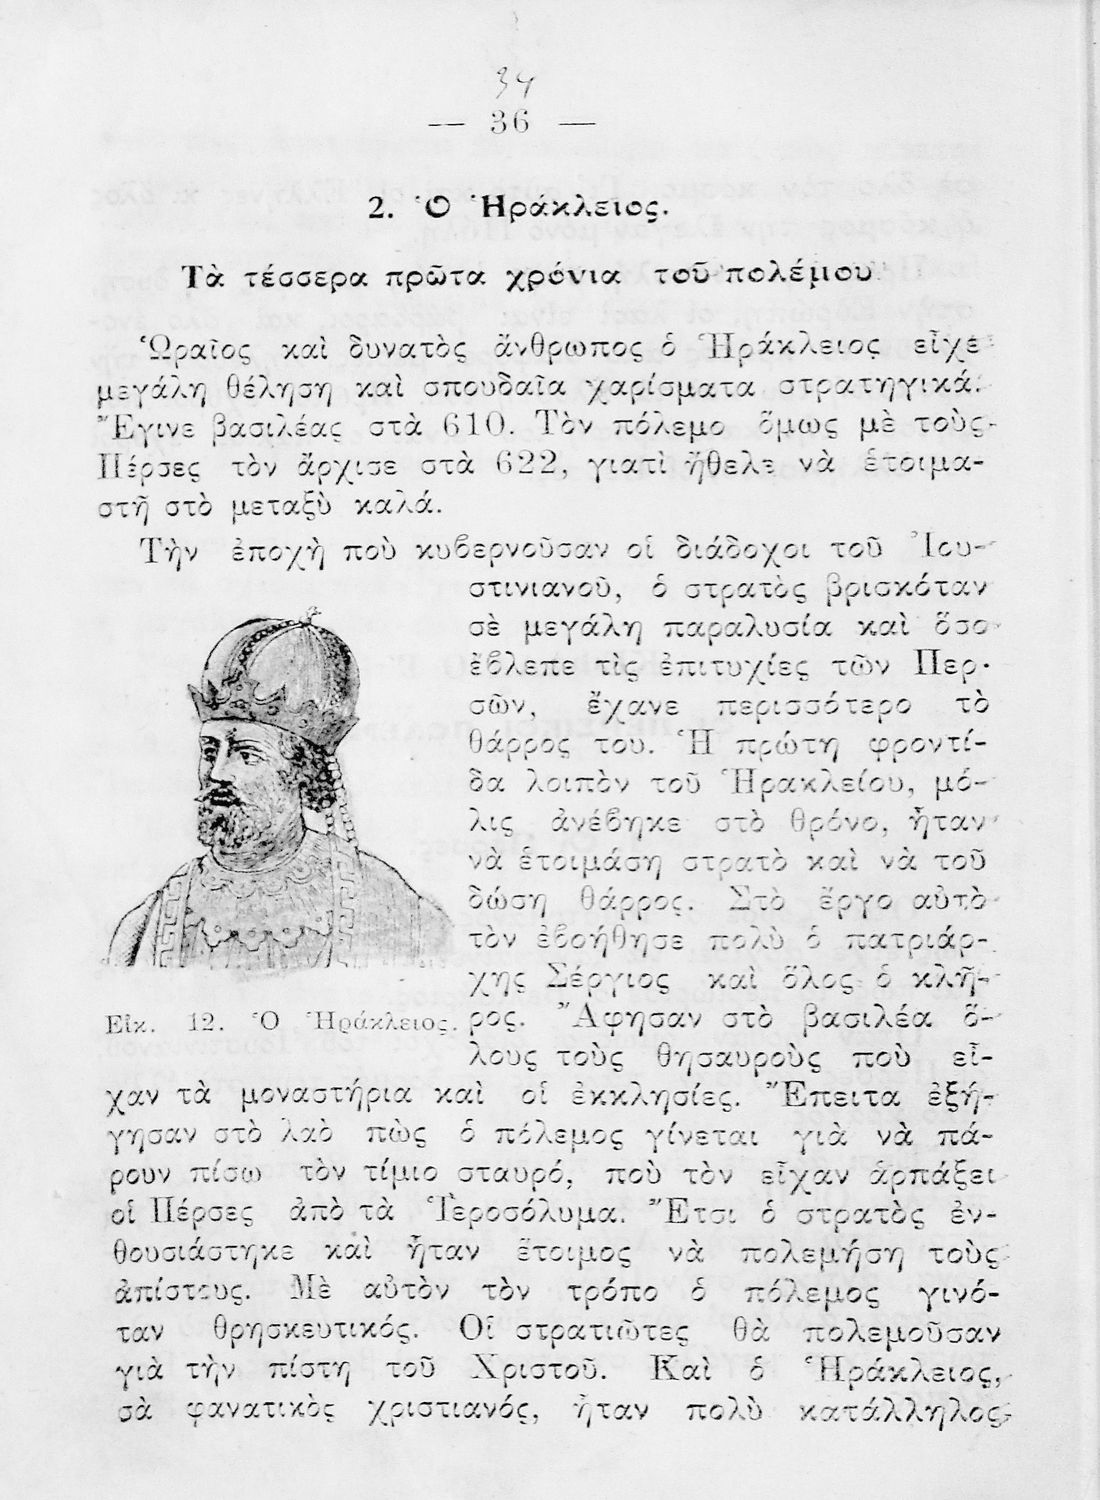 34
— 36 —
2. Ὁ Ἡράκλειος.
Τὰ τέσσερα πρῶτα χρόνια τοῦ πολέμου
Ὡραῖος καὶ δυνατὸς ἄνθρωπος ὁ Ἡράκλειος εἶχε
μεγάλη θέληση καὶ σπουδαῖα χαρίσματα στρατηγικά.
Ἔγινε βασιλέας στὰ 610. Τὸν πόλεμο ὅμως μὲ τοὺς
Πέρσες τὸν ἄρχισε στὰ 622, γιατὶ ἤθελε νὰ ἑτοιμα-
στῆ στὸ μεταξὺ καλά.
Τὴν ἐποχὴ ποὺ κυβερνοῦσαν οἱ διάδοχοι τοῦ Ἰου-
στινιανοῦ, ὁ στρατὸς βρισκόταν
σὲ μεγάλη παραλυσία καὶ ὅσο
ἔβλεπε τὶς ἐπιτυχίες τῶν Περ-
σῶν, ἔχανε περισσότερο τὸ
θάρρος του. Ἡ πρώτη φροντί-
δα λοιπὸν τοῦ Ἡρακλείου, μό-
λις ἀνέβηκε στὸ θρόνο, ἦταν
νὰ ἑτοιμάση στρατὸ καὶ νὰ τοῦ
δώση θάρρος. Στὸ ἔργο αὐτὸ
τὸν ἐβοήθησε πολὺ ὁ πατριάρ-
χης Σέργιος καὶ ὅλος ὁ κλῆ-
ρος. Ἄφησαν στὸ βασιλέα ὅ-
λους τοὺς θησαυροὺς ποὺ εἶ-
Εἰκ. 12. Ὁ Ἡράκλειος.
χαν τὰ μοναστήρια καὶ οἱ ἐκκλησίες. Ἔπειτα ἐξή-
γησαν στὸ λαὸ πὼς ὁ πόλεμος γίνεται γιὰ νὰ πά-
ρουν πίσω τὸν τίμιο σταυρό, ποὺ τὸν εἶχαν ἁρπάξει
οἱ Πέρσες ἀπὸ τὰ Ἱεροσόλυμα. Ἔτσι ὁ στρατὸς ἐν-
θουσιάστηκε καὶ ἦταν ἕτοιμος νὰ πολεμήση τοὺς
ἀπίστους. Μὲ αὐτὸν τὸν τρόπο ὁ πόλεμος γινό-
ταν θρησκευτικός. Οἱ στρατιῶτες θὰ πολεμοῦσαν
γιὰ τὴν πίστη τοῦ Χριστοῦ. Καὶ ὁ Ἡράκλειος,
σὰ φανατικὸς χριστιανός, ἦταν πολὺ κατάλληλος